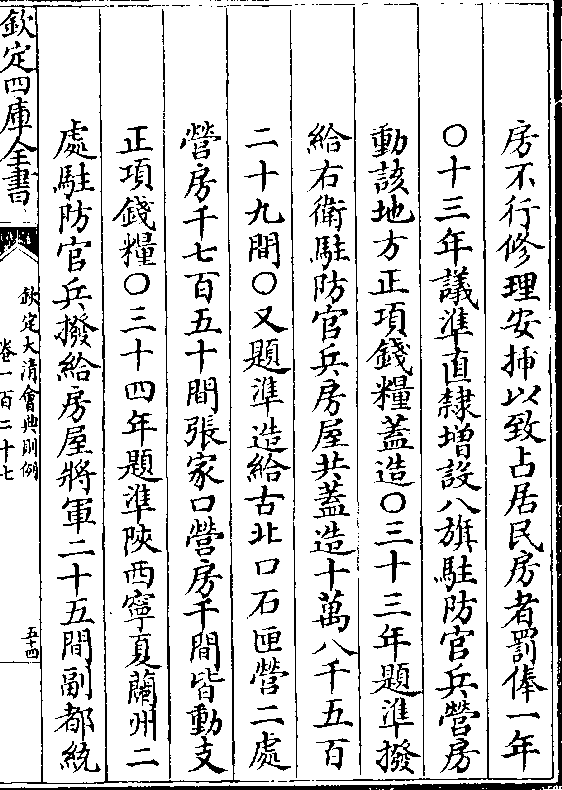 房不行修理安揷以致占居民房者罰俸一年
〇十三年議準直隸增設八旗駐防官兵營房
動該地方正項錢糧蓋造〇三十三年題準撥
給右衛駐防官兵房屋共蓋造十萬八千五百
二十九間〇又題準造給古北口石匣營二處
營房千七百五十間張家口營房千間皆動支
正項錢糧〇三十四年題準陝西寧夏蘭州二
處駐防官兵撥給房屋將軍二十五間副都統
欽定四庫全書
欽定大清會典則例
卷一百二十七
五十四